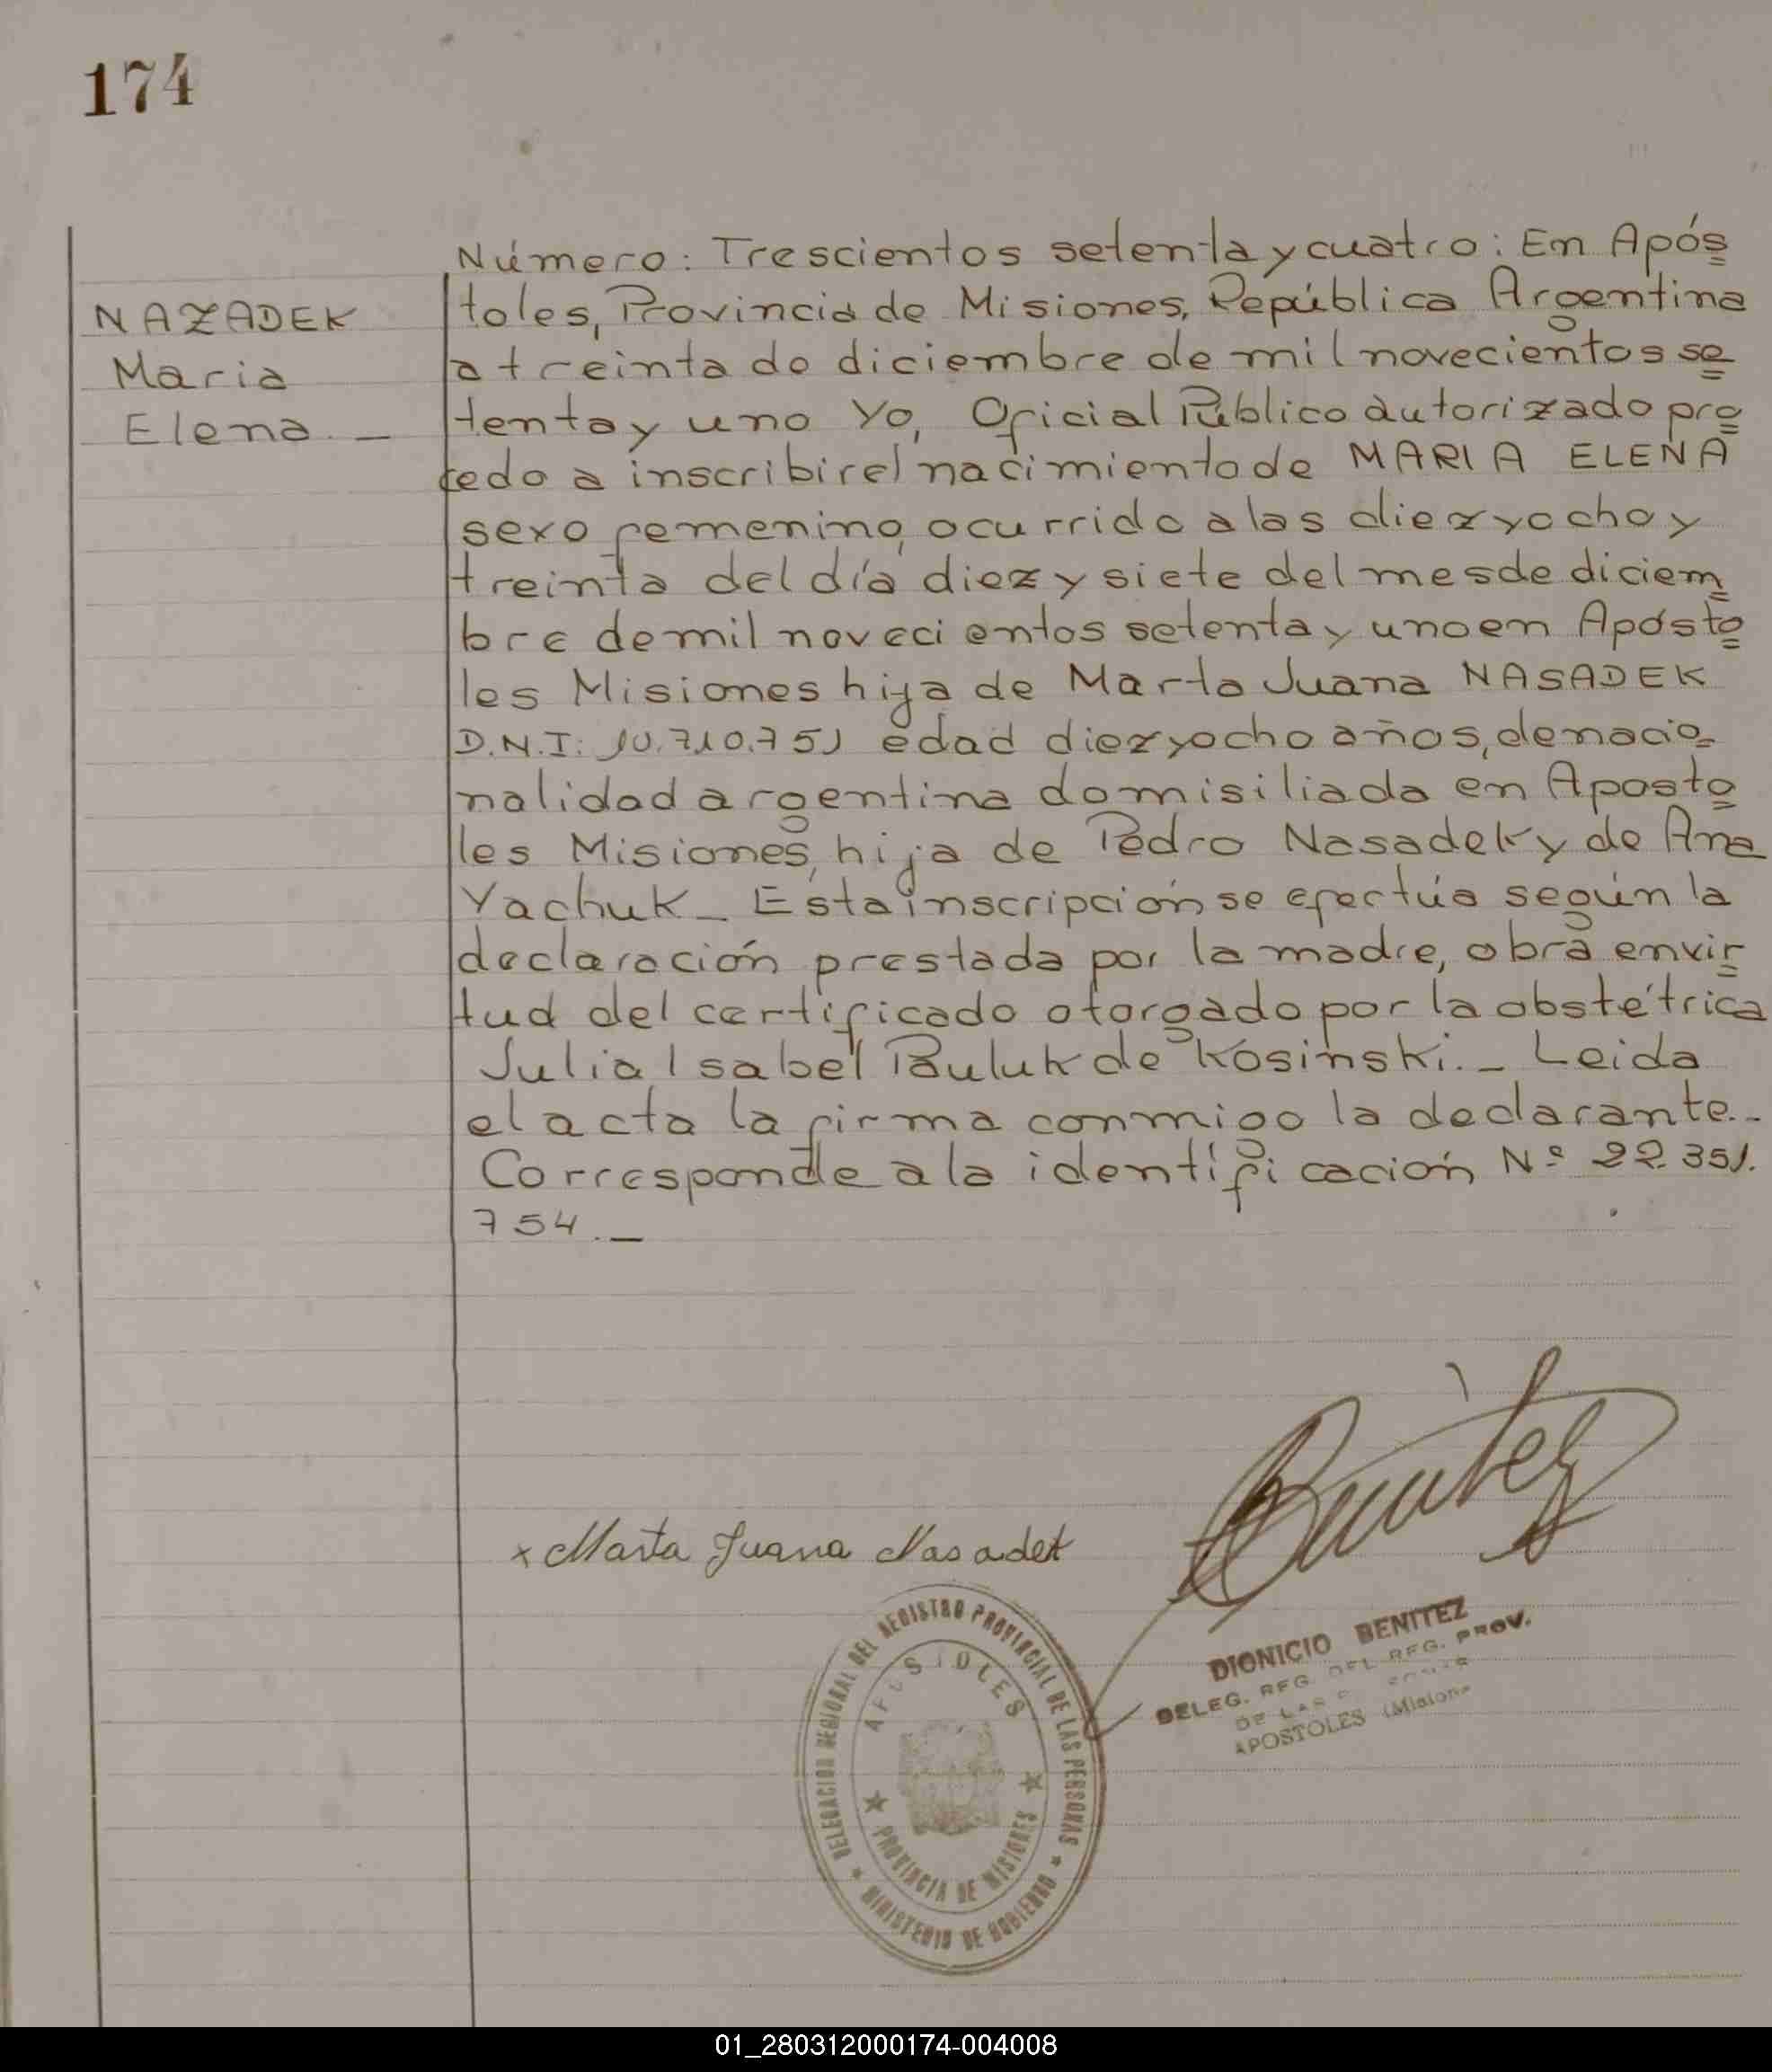 174
NAZADEK
Maria
Elena. _
Número: Trescientos setenta y cuatro: En Após
toles, Provincia de Misiones, República Argentina
a treinta de diciembre de mil novecientos se
tenta y uno Yo, Oficial Público autorizado pro
cedo a inscribir el nacimiento de MARIA ELENA
sexo femenino, ocurrido a las diez y ocho y
treinta del día diez y siete del mes de diciem
bre de mil novecientos setenta y uno en Apósto
les Misiones hija de Marta Juana NASADEK
D.N.I: 10.710.751 edad diez y ocho años, de nacio
nalidad argentina domisiliada en Aposto
les Misiones, hija de Pedro Nasadek y de Ana
Yachuk _ Esta inscripción se efectúa según la
declaración prestada por la madre, obra en vir
tud del certificado otorgado por la obstétrica
Julia Isabel Buluk de Kosinski. _ Leida
el acta la firma conmigo la declarante. _
Corresponde a la identificación Nº 22.351.
754. _
x Marta Juana Nasadek
Benitez
DIONICIO BENITEZ
DELEG. REG. DEL REG. PROV.
DE LAS
APOSTOLES (Misiones
DELEGACION REGIONAL DEL REGISTRO PROVINCIAL DE LAS PERSONAS
APOSTOLES
PROVINCIA DE MISIONES
MINISTERIO DE GOBIERNO
01_280312000174-004008